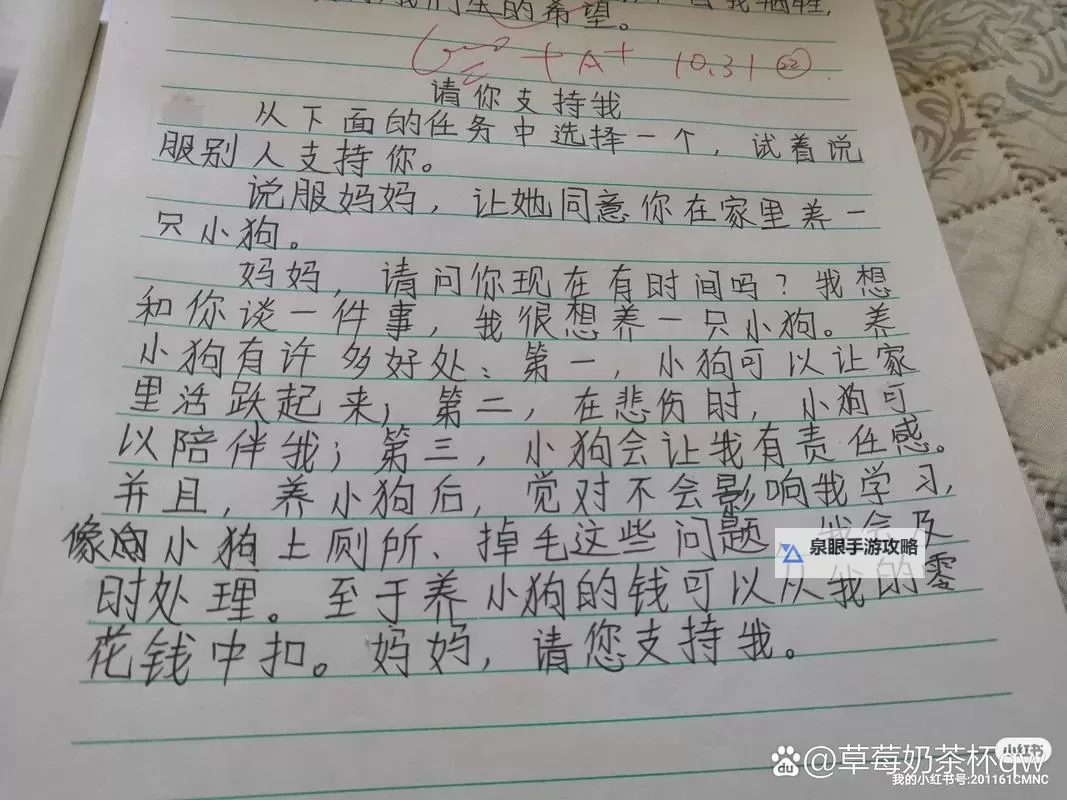 们生的希望。
A+ 10.31
请你支持我
从下面的任务中选择一个，试着说
服别人支持你。
说服妈妈，让她同意你在家里养一
只小狗。
妈妈，请问你现在有时间吗？我想
和你谈一件事，我很想养一只小狗。养
小狗有许多好处：第一，小狗可以让家
里活跃起来；第二，在悲伤时，小狗可
以陪伴我；第三，小狗会让我有责任感。
并且，养小狗后，觉对不会影响我学习，
像小狗上厕所、掉毛这些问题，我会及
泉眼手游攻略
时处理。至于养小狗的钱可以从我的零
花钱中扣。妈妈，请您支持我。
小红书
Bai du @草莓奶茶杯qw
我的小红书号:201161CMNC